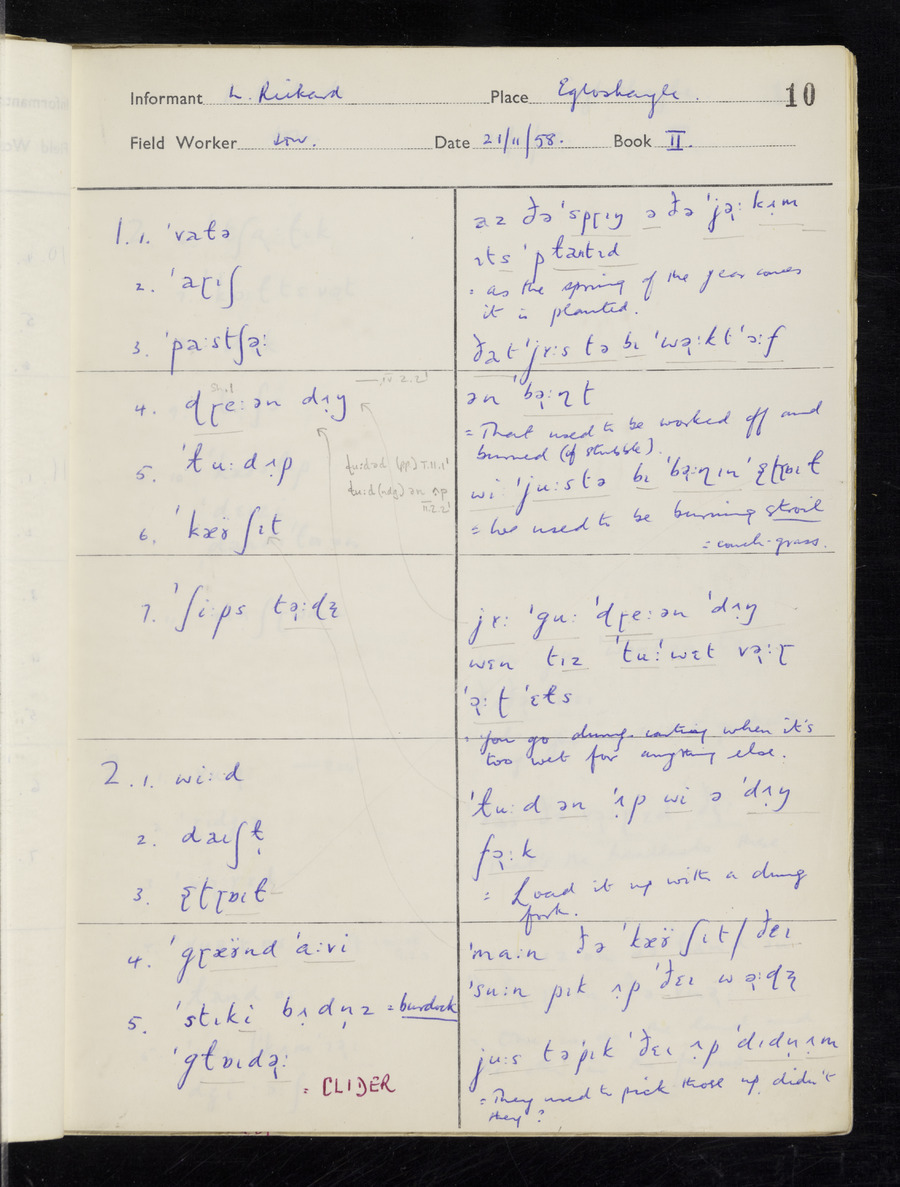 Informant L. Rickard Place Egloshayle 10
Field Worker Date 21/11/58. Book II.
1. 1. ˈvatə
2. ˈaɽɪʃ
3. ˈpaːstʃə̢ː
4. dɽeːən dʌ̢ŋ
IV.2.2!
5. ˈɫuːdʌp
6. ˈkæʊ̈ʃɪt
7. ˈʃiːps tə̢ːdʐ
2. 1. wiːd
2. daɪʃɫ̩
3. ʂtɽɒɪɫ
4. ˈgɽæʊ̈nd ˈaːvi
5. ˈstɪki bʌ̢dn̩z = burdock
ˈgɫɒɪdə̢ː
= CLIDER
az ðə ˈspɽɪŋ ə ðə ˈjə̢ː kʌ̢m
ɪts ˈpɫantɪd
= as the spring of the year comes
it is planted.
ðat ˈjʏːs tə bɪ ˈwə̢ːkt ˈɔːf
ən ˈbə̢ːɳt
= That used to be worked off and
burned (of stubble).
wi ˈjuːstə bɪ ˈbə̢ːɳɪn ˈʂtɽɒɪɫ
= We used to be burning stroil
= couch-grass.
jʏː ˈguː ˈdɽeːən ˈdʌ̢ŋ
wɛn tɪz ˈtuː wɛt və̢ːɽ
ˈə̢ːt ˈɛɫs
= you go dung-carting when it's
too wet for anything else.
ˈɫuːd ən ˈʌ̢p wi ə ˈdʌ̢ŋ
fə̢ːk
= Load it up with a dung
fork.
ˈmaːn ðə ˈkæʊ̈ʃɪt / ðeɪ
ˈsuːn pɪk ʌ̢p ˈðɛɪ wə̢ːdʐ
juːs tə pɪk ˈðɛɪ ʌ̢p ˈdɪdn̩ ʌ̢m
= They used to pick those up didn't
they?